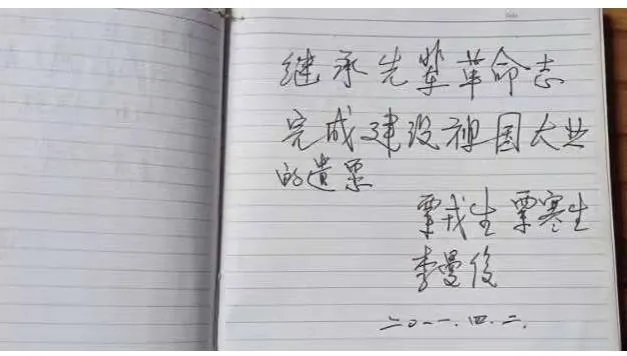 继承先辈革命志
完成建设祖国大业
的遗愿
覃戎生 覃寒生
李曼俊
二〇一一.四.二.